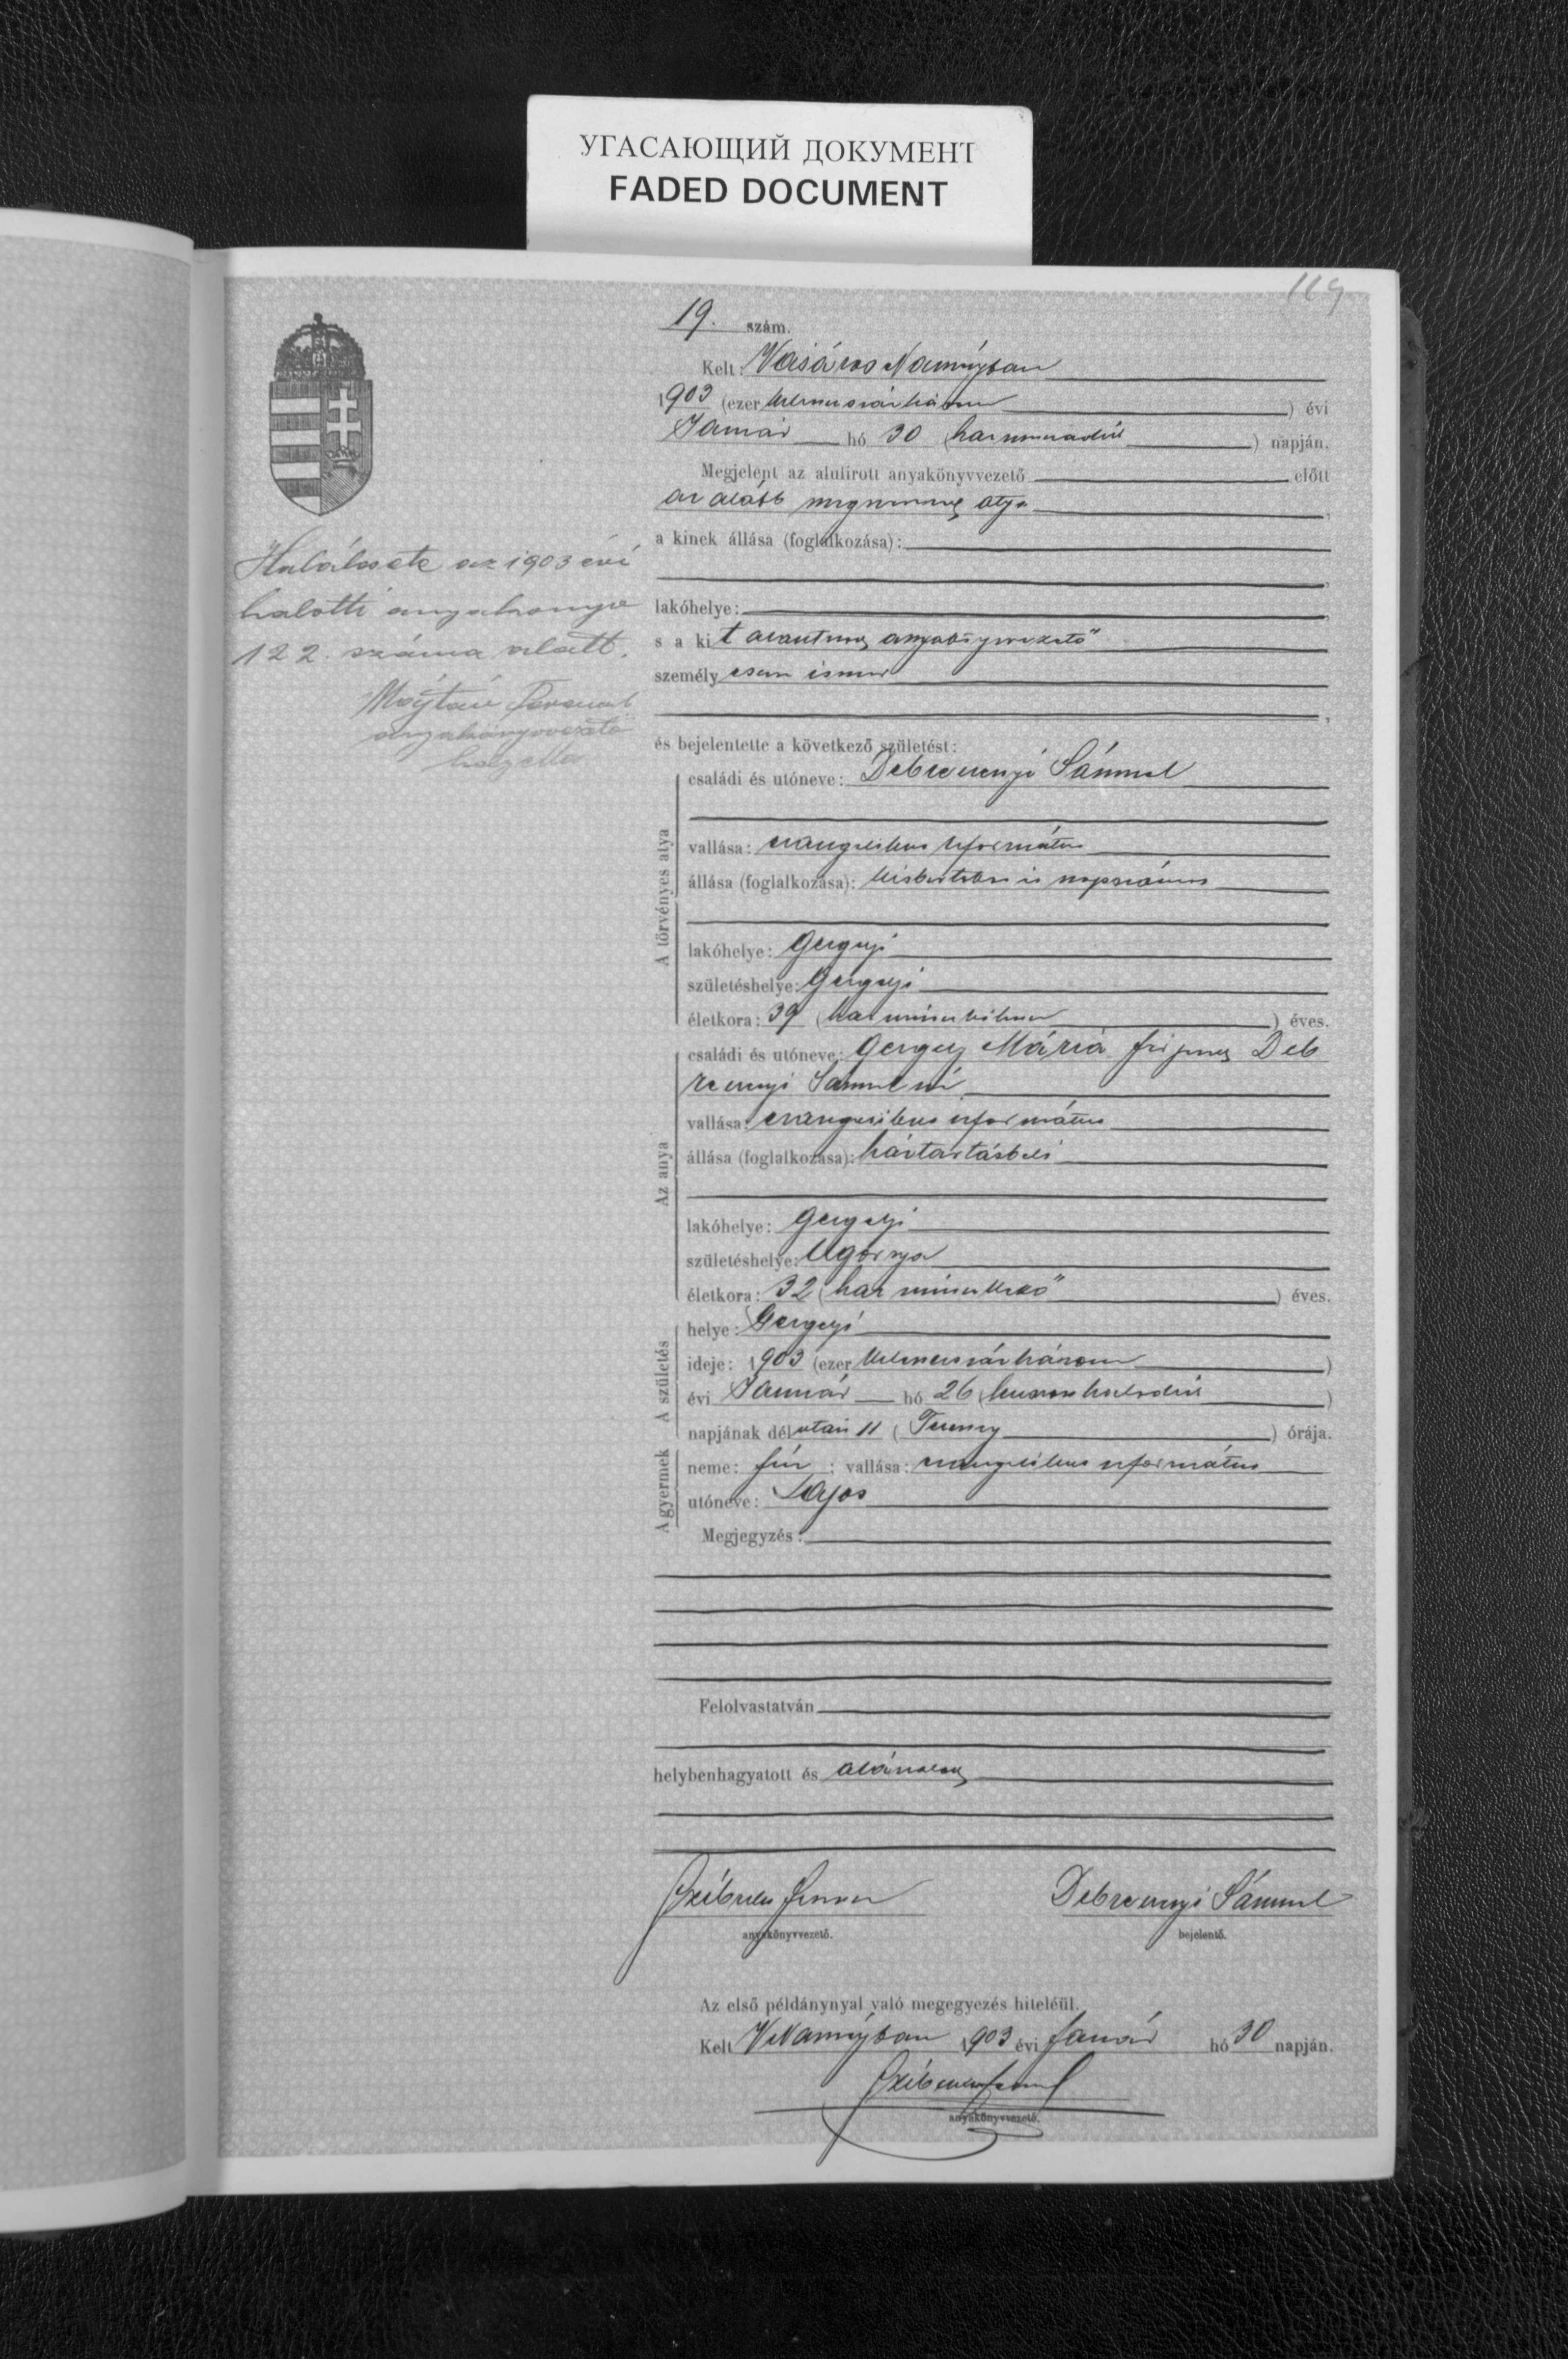 УГАСАЮЩИЙ ДОКУМЕНТ
FADED DOCUMENT
169
19. szám.
Kelt: Vásáros Naményban
1903 (ezer kilencszázhárom) évi
Január hó 30 (harmincadik) napján.
Megjelent az alulirott anyakönyvvezető előtt
az alább megnevezett atya
a kinek állása (foglalkozása):
lakóhelye:
s a kit anyakönyvvezető
személyesen ismer
és bejelentette a következő születést:
A törvényes atya
családi és utóneve: Debreczenyi Sámuel
vallása: evangelikus református
állása (foglalkozása): kisbirtokos és napszámos
lakóhelye: Gergelyi
születéshelye: Gergelyi
életkora: 39 (harminckilencz) éves.
Az anya
családi és utóneve: Gergely Mária férjezett Deb
reczenyi Sámuelné
vallása: evangelikus református
állása (foglalkozása): háztartásbeli
lakóhelye: Gergelyi
születéshelye: Ugornya
életkora: 32 (harminczkettő) éves.
A születés
helye: Gergelyi
ideje: 1903 (ezer kilencszázhárom)
évi Január hó 26 (huszonhatodik)
napjának délután 11 (Tizenegy) órája.
A gyermek
neme: fiú; vallása: evangelikus református
utóneve: Lajos
Megjegyzés:
Felolvastatván
helybenhagyatott és aláiratott
anyakönyvvezető.
Debreczenyi Sámuel
bejelentő.
Az első példánynyal való megegyezés hiteléül.
Kelt VNaményban 1903 évi Január hó 30 napján.
anyakönyvvezető.
Halálesete az 1903 évi
halotti anyakönyv
122. száma alatt.
anyakönyvvezető
helyettes